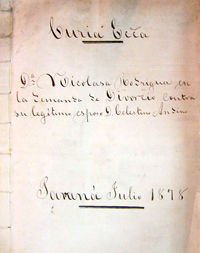 Curia Ecca
Da. Nicolasa Rodriguez en
la Demanda de Divorcio contra
su legitimo esposo D. Celestino Andino
Paraná Julio 1878